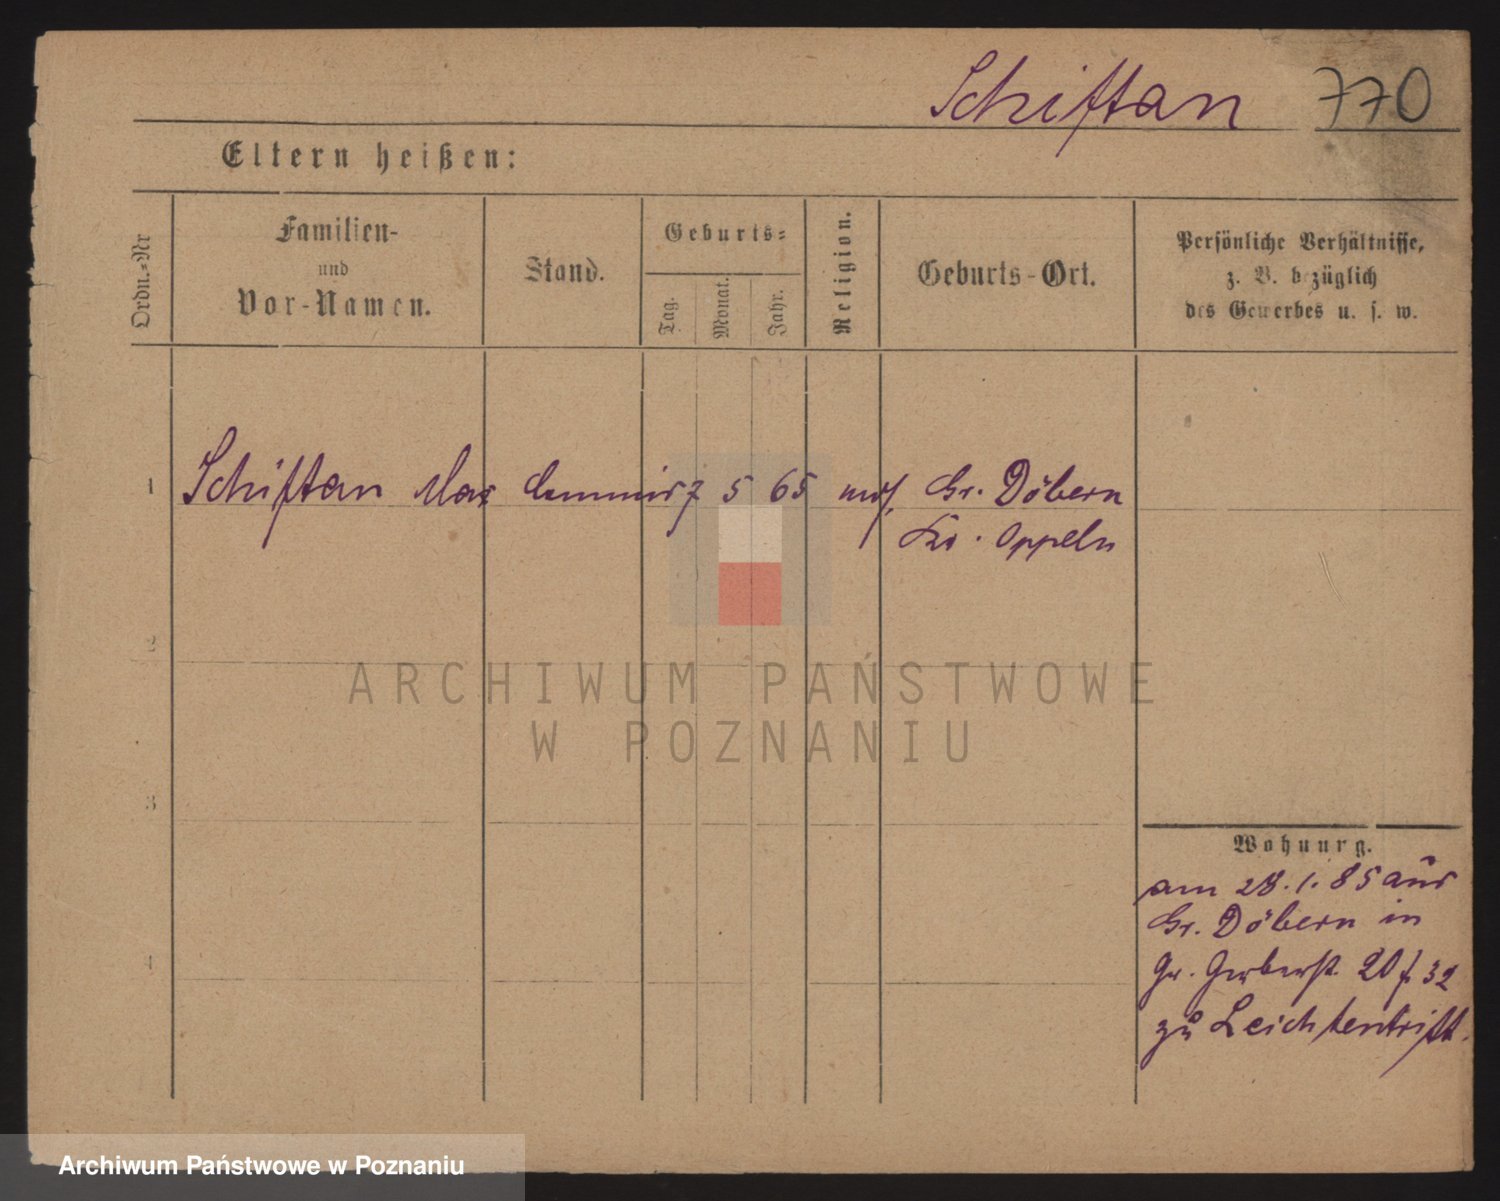 Schiftan 770
Eltern heißen:
Ordn.-Nr
Familien-
und
Vor-Namen.
Stand.
Geburts-
Tag.
Monat.
Jahr.
Religion.
Geburts-Ort.
Persönliche Verhältnisse,
z. B. bezüglich
des Gewerbes u. s. w.
1 Schiftan Max Commis 7 5 65 mos. Gr. Döbern
Kr. Oppeln
2
3
4
Wohnung.
am 28.1.85 aus
Gr. Döbern in
Gr. Gerberst. 20 f. 32
zu Leichtentritt.
ARCHIWUM PAŃSTWOWE
W POZNANIU
Archiwum Państwowe w Poznaniu